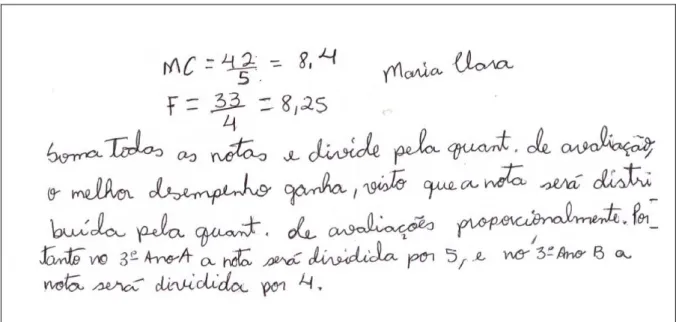 MC = 42/5 = 8,4 Maria Clara
F = 33/4 = 8,25
Soma Todas as notas e divide pela quant. de avaliação,
o melhor desempenho ganha, visto que a nota será distri
buída pela quant. de avaliações proporcionalmente. Por_
tanto no 3º Ano A a nota será dividida por 5, e no 3º Ano B a
nota será dividida por 4.